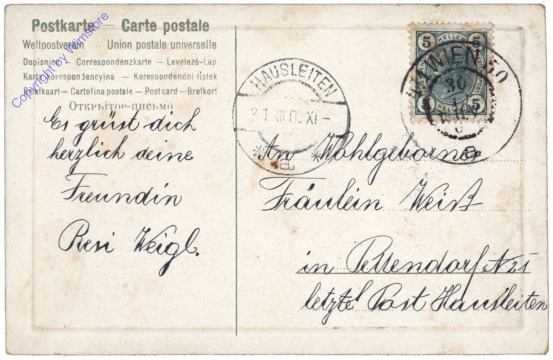 Postkarte — Carte postale
Weltpostverein — Union postale universelle
Dopisnice — Correspondenzkarte — Levelező-Lap
Karta korespondencyjna — Korespondenční lístek
Briefkaart — Cartolina postale — Postcard — Brefkort
Открытое письмо
Copyright by Wimstore
HAUSLEITEN
31 XII 0. XI-
* a *
5 5
5 5
WIEN 50
30
Es grüst dich
herzlich deine
Freundin
Resi Weigl.
An Wohlgeborne
Fräulein Weiß
in Pettendorf N 21
letzte Post Hausleiten